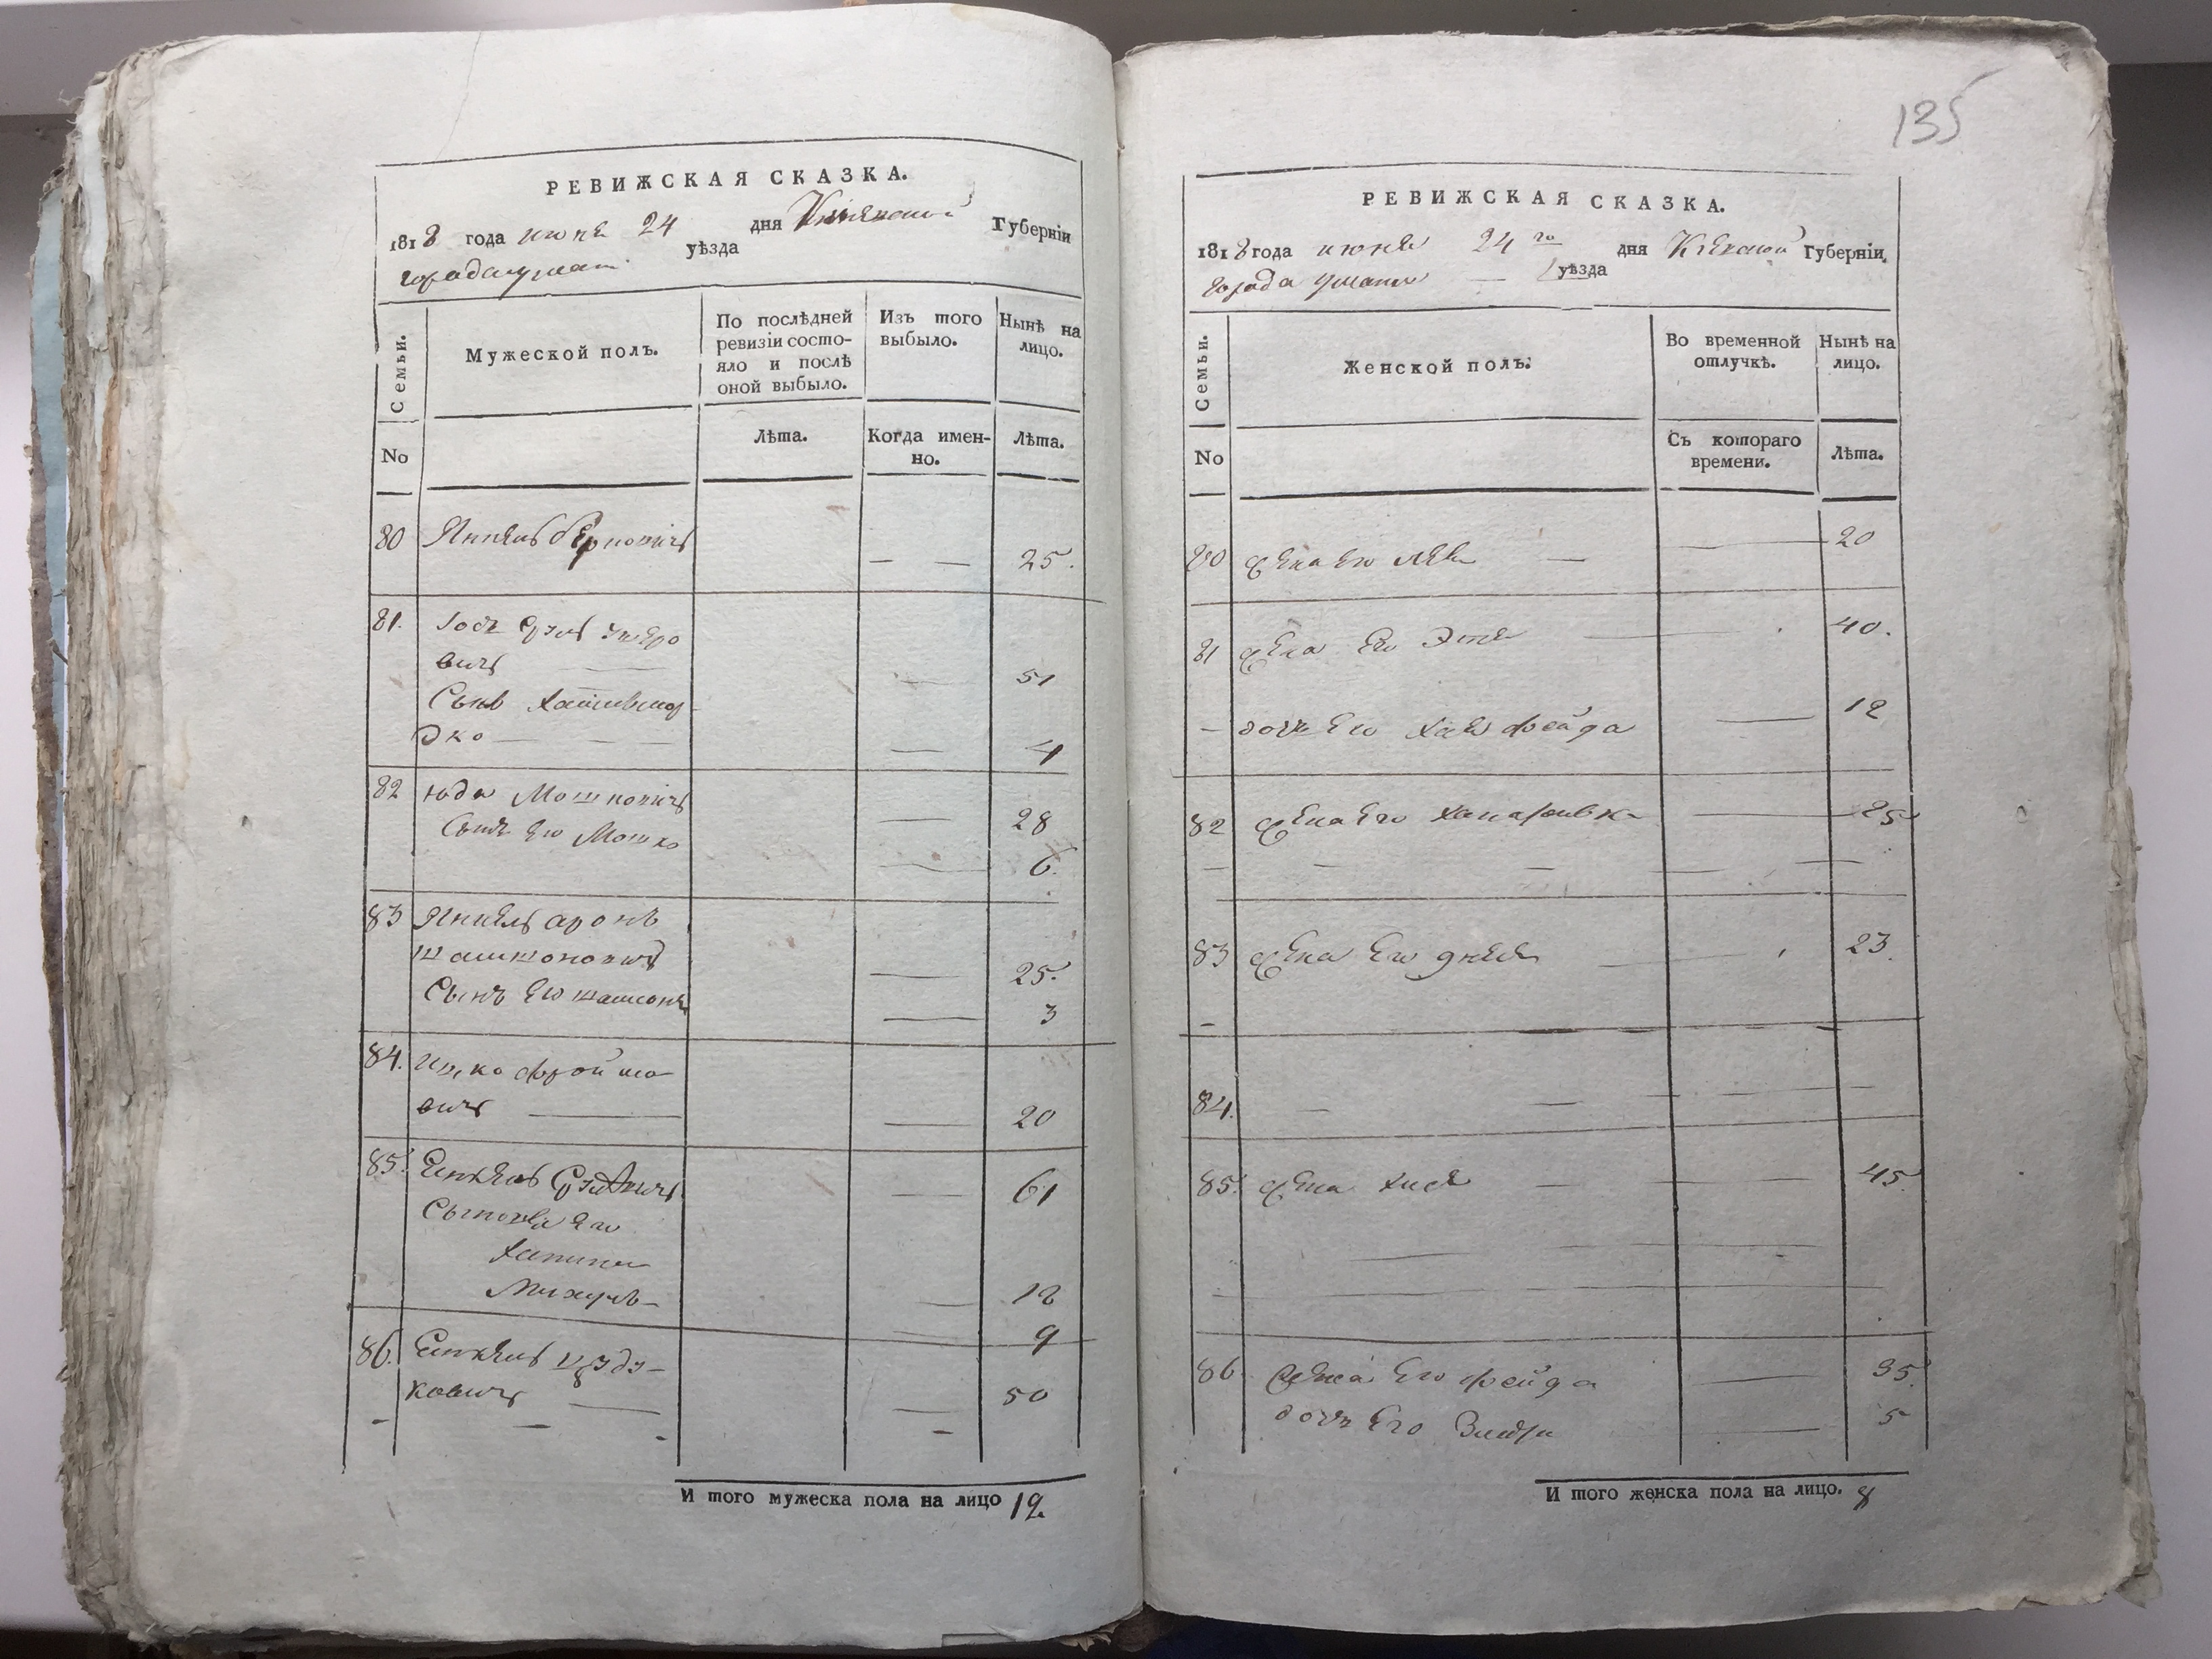 РЕВИЖСКАЯ СКАЗКА.
1818 года июня 24 дня Киевской Губерніи
города Умани уѣзда
Семьи.
Мужеской полъ.
По послѣдней ревизіи состо-
яло и послѣ
оной выбыло.
Изъ того
выбыло.
Нынѣ на
лицо.
No
Лѣта.
Когда имен-
но.
Лѣта.
80 Янкель Берковичъ — — 25.
81. Іось Срэль
вичъ — — 51
Сынъ
— — 4
82 Юда Мошковичъ — 28
Сынъ Его Мошко — 6.
83 Янкель Аронъ
Шамшоновичъ — 25.
Сынъ Его Шамсонъ — 3
84. Ицко Фроймо-
вичъ — — 20
85. — 61
Сыновья Его
Хаимъ
— 12
9
86.
ковичъ — — 50
И того мужеска пола на лицо 12.
135
РЕВИЖСКАЯ СКАЗКА.
1818 года июня 24го дня Кіевской Губерніи
города Умани — уѣзда
Семьи.
Женской полъ.
Во временной
отлучкѣ.
Нынѣ на
лицо.
No
Съ котораго
времени.
Лѣта.
80 жена Его Лея — — 20
81 жена Его Этя — 40.
— дочь Его Хая Фейга — 12
82 жена Его — 25
83 жена Его — 23.
84. — — —
85. жена Хися — — 45.
86 жена Его Фейга — 35.
дочь Его — 5
И того женска пола на лицо. 8